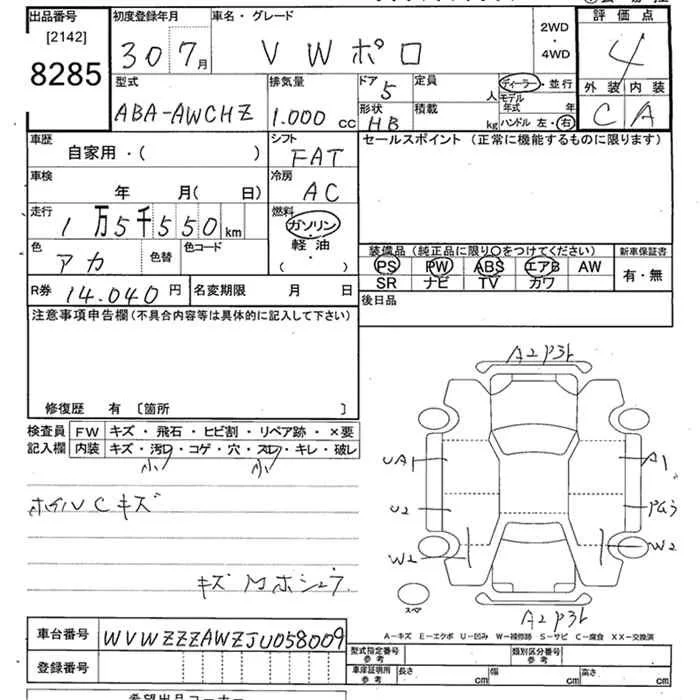 出品番号 初度登録年月 車名・グレード 評価点
[2142] 8285 30 7月 VWポロ 2WD・4WD 4
型式 排気量 ドア 定員 ディーラー・並行 外装 内装
ABA-AWCHZ 1.000 cc 5 人 モデル年式 年 C A
形状 積載 ハンドル 左・右
HB kg
車歴 シフト セールスポイント (正常に機能するものに限ります)
自家用・( ) FAT
車検 冷房
年 月( 日) AC
走行 燃料
1万5千550km ガソリン・軽油
色 色替 色コード ( ・ )
アカ
装備品(純正品に限り○をつけてください) 新車保証書
PS PW ABS エアB AW 有・無
SR ナビ TV カワ
R券 14.040円 名変期限 月 日 後日品
注意事項申告欄(不具合内容等は具体的に記入して下さい)
修復歴 有 〔箇所 〕
検査員 FW キズ・飛石・ヒビ割・リペア跡・×要
記入欄 内装 キズ・汚レ・コゲ・穴・スレ・キレ・破レ
小 小
ホイルCキズ
A2 P3ト
UA A1
U2 PG3
W2 W2
スペア
A2 P3ト
A-キズ E-エクボ U-凹み W-補修跡 S-サビ C-腐食 XX-交換済
車台番号 WVWZZZAWZJU058009
登録番号
型式指定番号 参考 類別区分番号 参考
車庫証明用 参考 長さ cm 幅 cm 高さ cm
希望出品コーナー